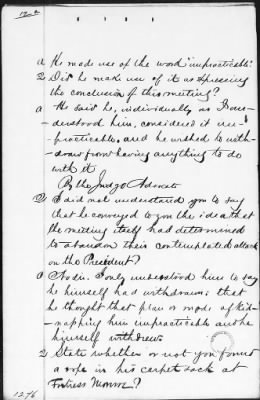 A He made use of the word "impracticable."
Q Did he make use of it as expressing
the conclusion of this meeting?
A He said he, individually, as I un-
derstood him, considered it im-
practicable, and he wished to with-
draw from having anything to do
with it.
By the Judge Advocate
Q I did not understand you to say
that he conveyed to you the idea that
the meeting itself had determined
to abandon their contemplated attack
on the President?
A No sir. I only understood him to say
he himself had withdrawn; that
he thought that plan or mode of kid-
napping him impracticable and he
himself withdrew.
Q State whether or not you found
a rope in his carpet sack at
Fortress Monroe?
1276